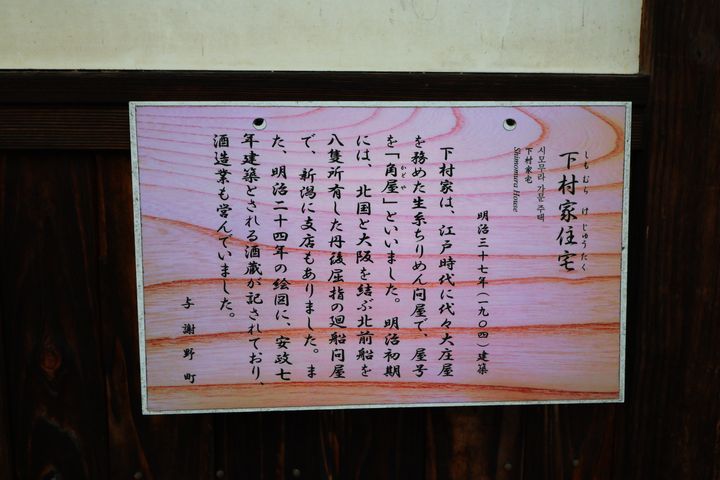 しもむら け じゅうたく
下村家住宅
시모무라 가문 주택
下村家宅
Shimomura House
明治三十七年(一九〇四)建築
下村家は、江戸時代に代々大庄屋
を務めた生糸ちりめん問屋で、屋号
かどや
を「角屋」といいました。明治初期
には、北国と大阪を結ぶ北前船を
八隻所有した丹後屈指の廻船問屋
で、新潟に支店もありました。ま
た、明治二十四年の絵図に、安政七
年建築とされる酒蔵が記されており、
酒造業も営んでいました。
与謝野町